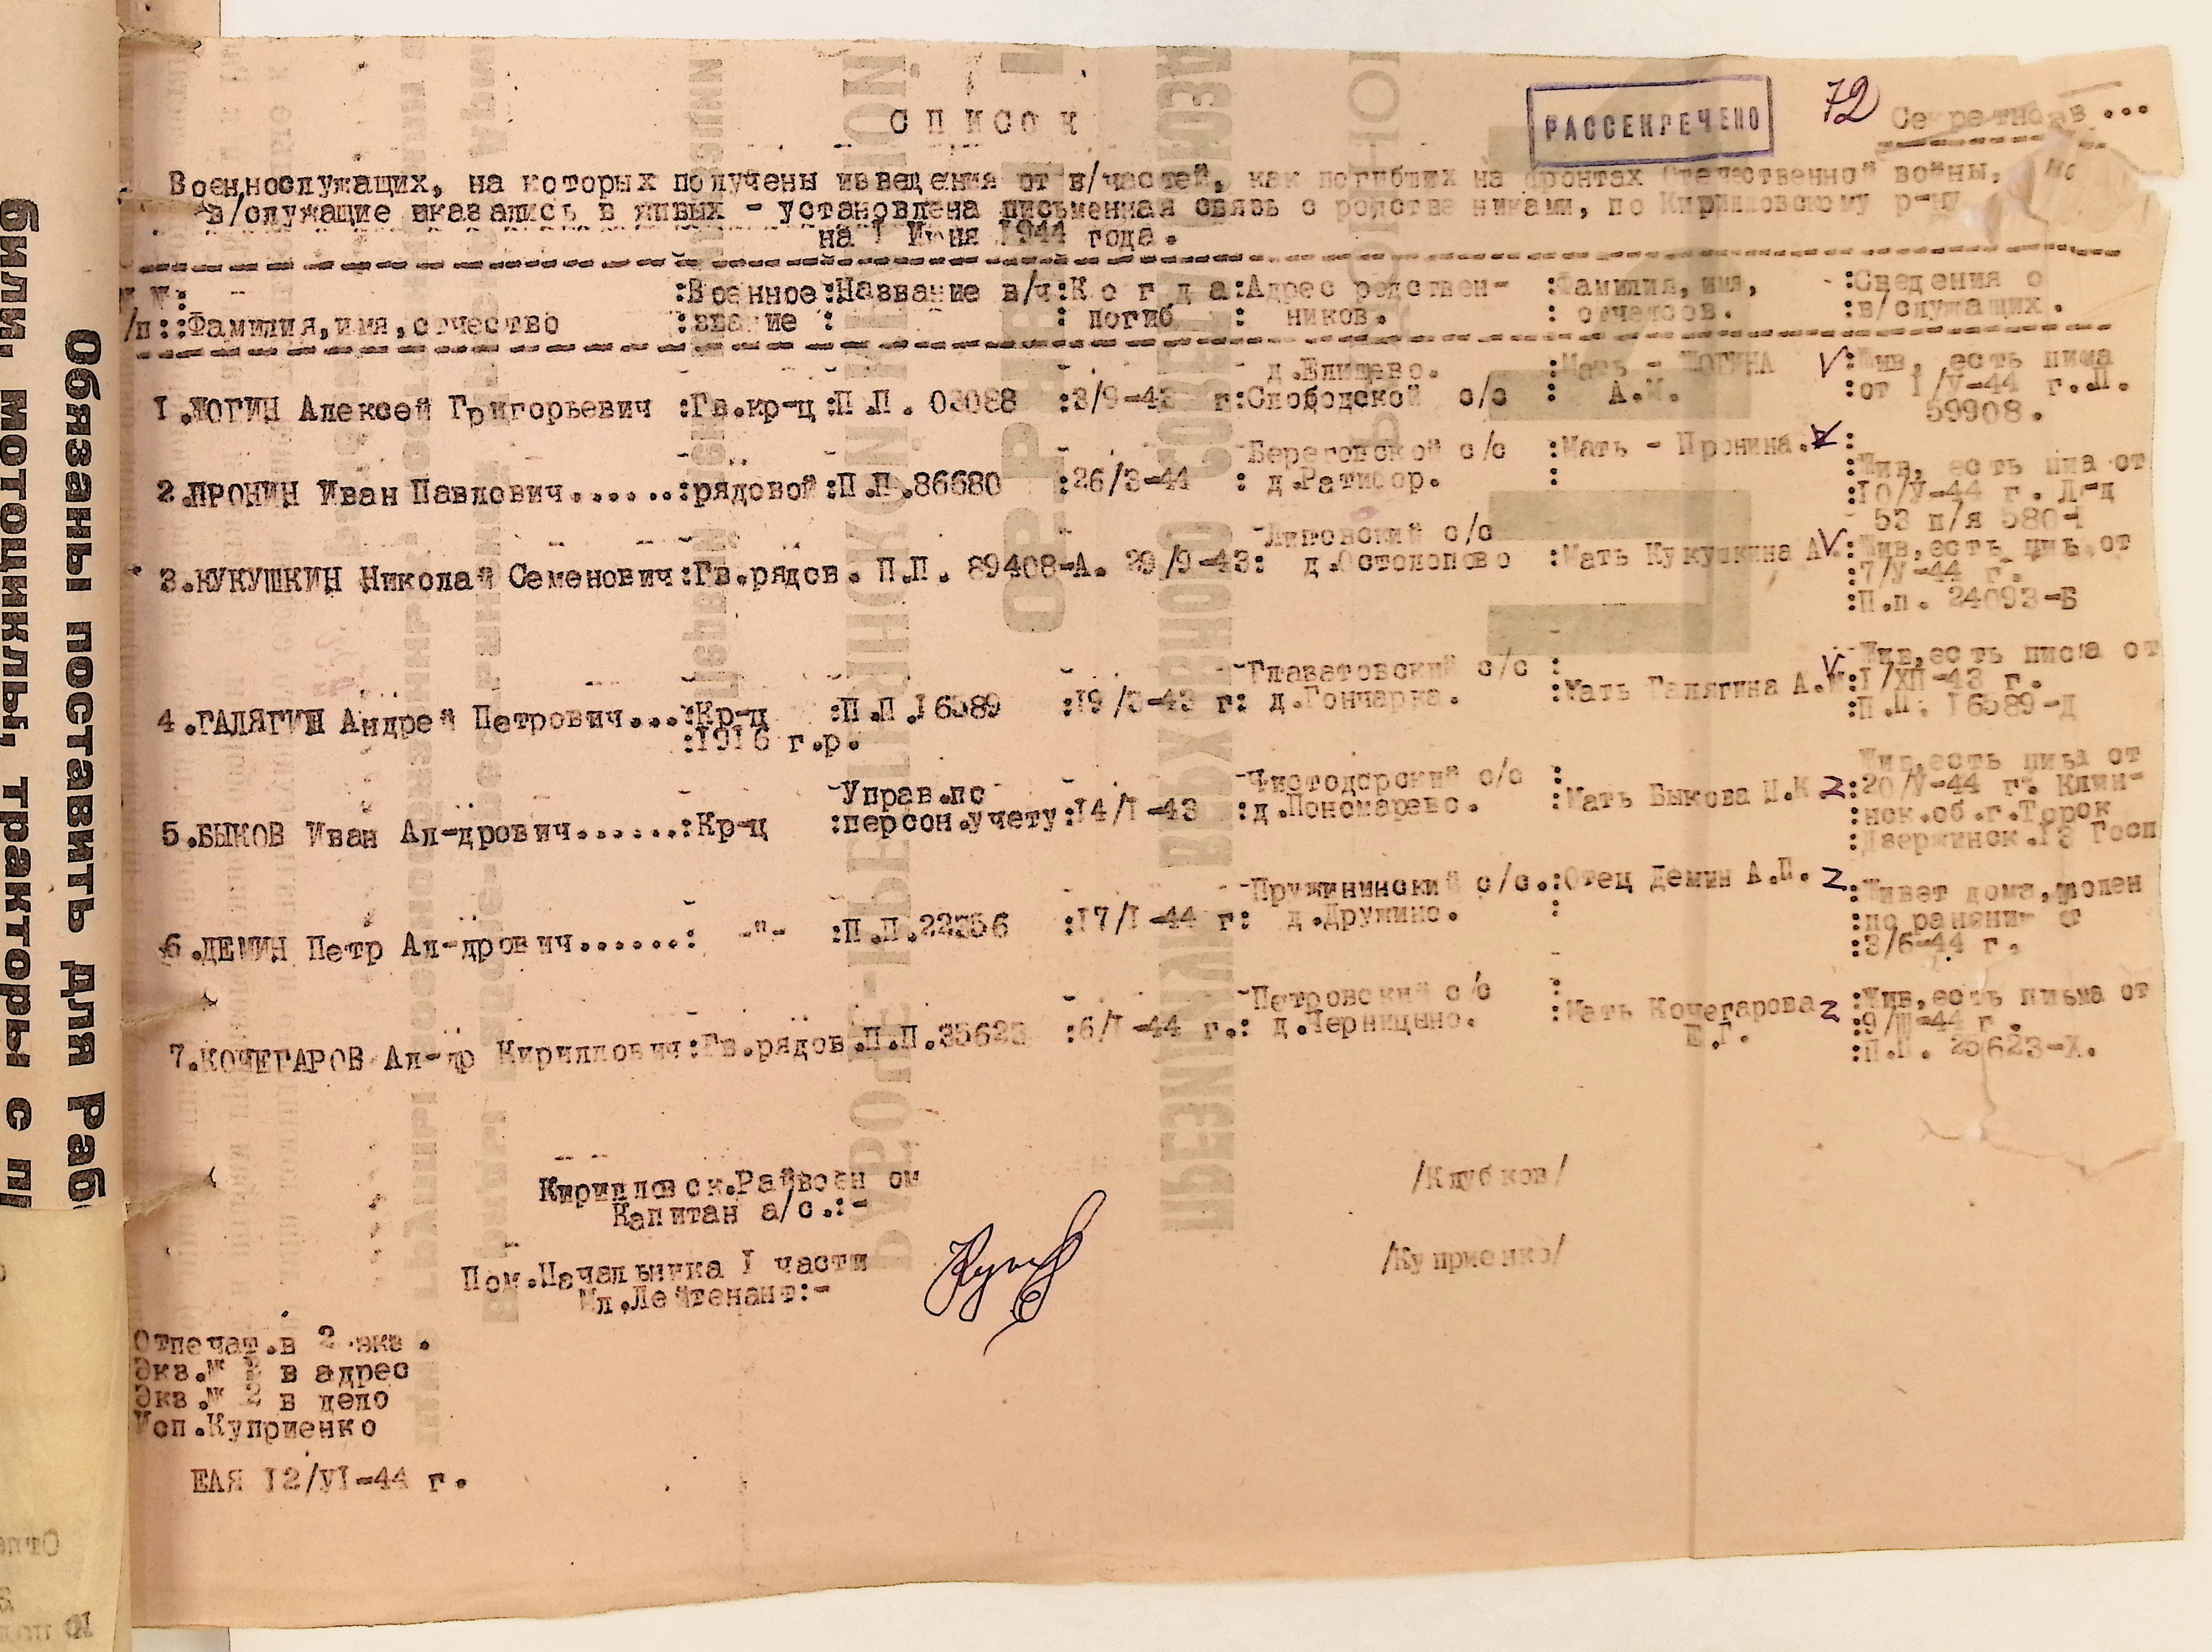 С П И С О К
РАССЕКРЕЧЕНО
72
Секретно
Военнослужащих, на которых получены извещения от в/частей, как погибших на фронтах Отечественной войны, но
в/служащие оказались в живых - установлена письменная связь с родственниками, по Кирилловскому р-ну
на I Июня 1944 года.
:Военное:Название в/ч:К о г д а:Адрес родствен- :Фамилия, имя, :Сведения о
/п::Фамилия,имя,отчество :звание : : погиб : ников. : отчеств. :в/служащих.
д.Елицево. :Мать - ЛОГИНА V:Жив, есть пима
I.ЛОГИН Алексей Григорьевич :Гв.кр-ц:П.П. 03088 :3/9-43 г:Слободской с/с : А.М. :от I/V-44 г.П.
59908.
Береговской с/с :Мать - Пронина. V:
2.ПРОНИН Иван Павлович......:рядовой:П.П.86680 :26/3-44 : д.Ратибор. : Жив, есть пиа от
:I0/V-44 г. Л-д
53 п/я 580-I
Липовский с/с
3.КУКУШКИН Николай Семенович:Гв.рядов. П.П. 89408-А. 29/9-43: д.Остолопово :Мать Кукушкина А V:Жив,есть пиь.от
:7/V-44 г.
:П.п. 24093-Б
Главатовский с/с : V Жив,есть писма от
4.ГАЛЯГИН Андрей Петрович...:Кр-ц :П.П.I6389 :I9/3-43 г: д.Гончарка. :Мать Галягина А.М:I/XП-43 г.
:I9I6 г.р. :П.П. I6389-Д
Управ.по Чистодорский с/с : Жив,есть пиьа от
5.БЫКОВ Иван Ал-дрович......:Кр-ц :персон.учету:I4/I-43 :д.Пономарево. :Мать Быкова :20/V-44 г. Клин-
:нск.об.г.Торок
:Дзержинск.I3 Госп
Пружининский с/с.:Отец Демин А.П. :Живет дома,уволен
6.ДЕМИН Петр Ал-дрович......: -"- :П.П.22356 :I7/I-44 г: д.Дружино. : :по ранению с
:3/6-44 г.
Петровский с/с :Мать Кочегарова :Жив,есть письма от
7.КОЧЕГАРОВ Ал-др Кириллович:Гв.рядов.П.П.35623 :6/I-44 г.: д.Черницыно. Е.Г. :9/Ш-44 г.
:П.П. 25623-Х.
Кирилловск.Райвоен ом
Капитан а/с.:- /Клубков/
Пом.Начальника I части
Мл.Лейтенант:- /Куприенко/
Отпечат.в 2 экз.
Экз.№ I в адрес
Экз.№ 2 в дело
Исп.Куприенко
ЕАЯ I2/VI-44 г.
Обязаны поставить для Раб
били, мотоциклы, тракторы с п